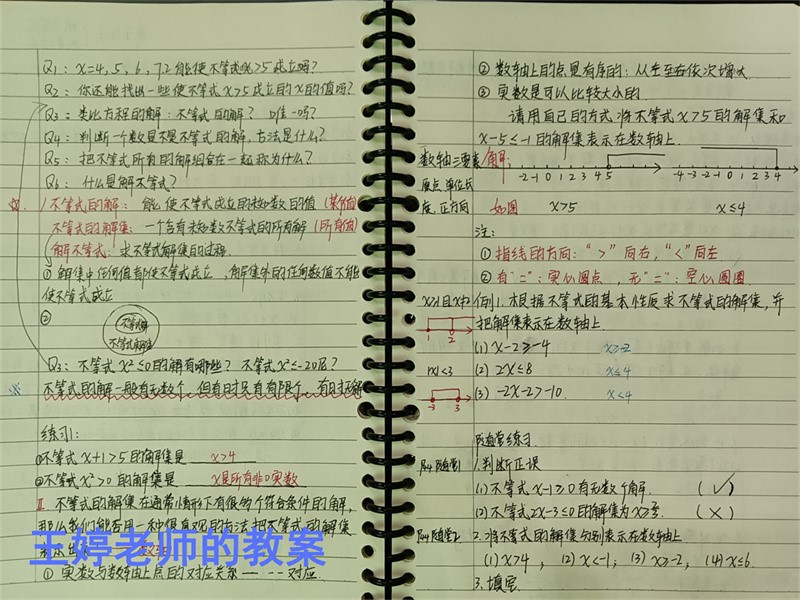 Q1: x=4, 5, 6, 7.2能使不等式x>5成立吗?
Q2: 你还能找出一些使不等式x>5成立的x的值吗?
Q3: 类比方程的解:不等式的解? 唯一吗?
Q4: 判断一个数是不是不等式的解,方法是什么?
Q5: 把不等式所有的解组合在一起称为什么?
Q6: 什么是解不等式?
不等式的解: 能使不等式成立的未知数的值(某个值)
不等式的解集: 一个含有未知数不等式的所有解(所有值)
解不等式: 求不等式解集的过程.
① 解集中任何值都使不等式成立,解集外的任何数值不能
使不等式成立
②
不等式解
不等式解集
Q3: 不等式x²≤0的解有哪些? 不等式x²≤-20呢?
※ 不等式的解一般有无数个,但有时只有有限个,有时无解
练习1:
①不等式x+1>5的解集是 x>4
②不等式x²>0的解集是 x是所有非0实数
II. 不等式的解集在通常情形下有很多个符合条件的解,
那么我们能否用一种
的方法把不等式的解集
王婷老师的教案
① 实数与数轴上点的对应关系 一一对应.
② 数轴上的点是有序的: 从左至右依次增大.
③ 实数是可以比较大小的.
请用自己的方式将不等式x>5的解集和
x-5≤-1的解集表示在数轴上.
数轴三要素
原点,单位长
度,正方向
-2 -1 0 1 2 3 4 5
-4 -3 -2 -1 0 1 2 3 4
如图 x>5 x≤4
注:
① 指线的方向: “>”向右,“<”向左
② 有“=”: 实心圆点, 无“=”: 空心圆圈
例1. 根据不等式的基本性质求不等式的解集,并
把解集表示在数轴上.
1 2
(1) x-2≥-4 x≥-2
|x|<3
(2) 2x≤8 x≤4
-3 3
(3) -2x-2>-10 x<4
随堂练习.
P44 随堂1
1.判断正误
(1)不等式x-1≥0有无数个解. (√)
(2)不等式2x-3≤0的解集为x≥⅔. (×)
P44随堂2
2.将不等式的解集分别表示在数轴上
(1)x>4, (2)x<-1, (3)x≥-2, (4)x≤6.
3.填空.